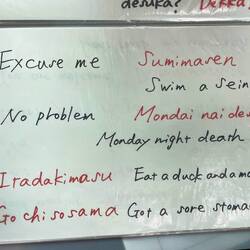 desuka? Dekka
Excuse me Sumimasen
Swim a sein
No problem Mondai nai des
Monday night death
Iradakimasu Eat a duck and a mo
Go chisosama Got a sore stoma